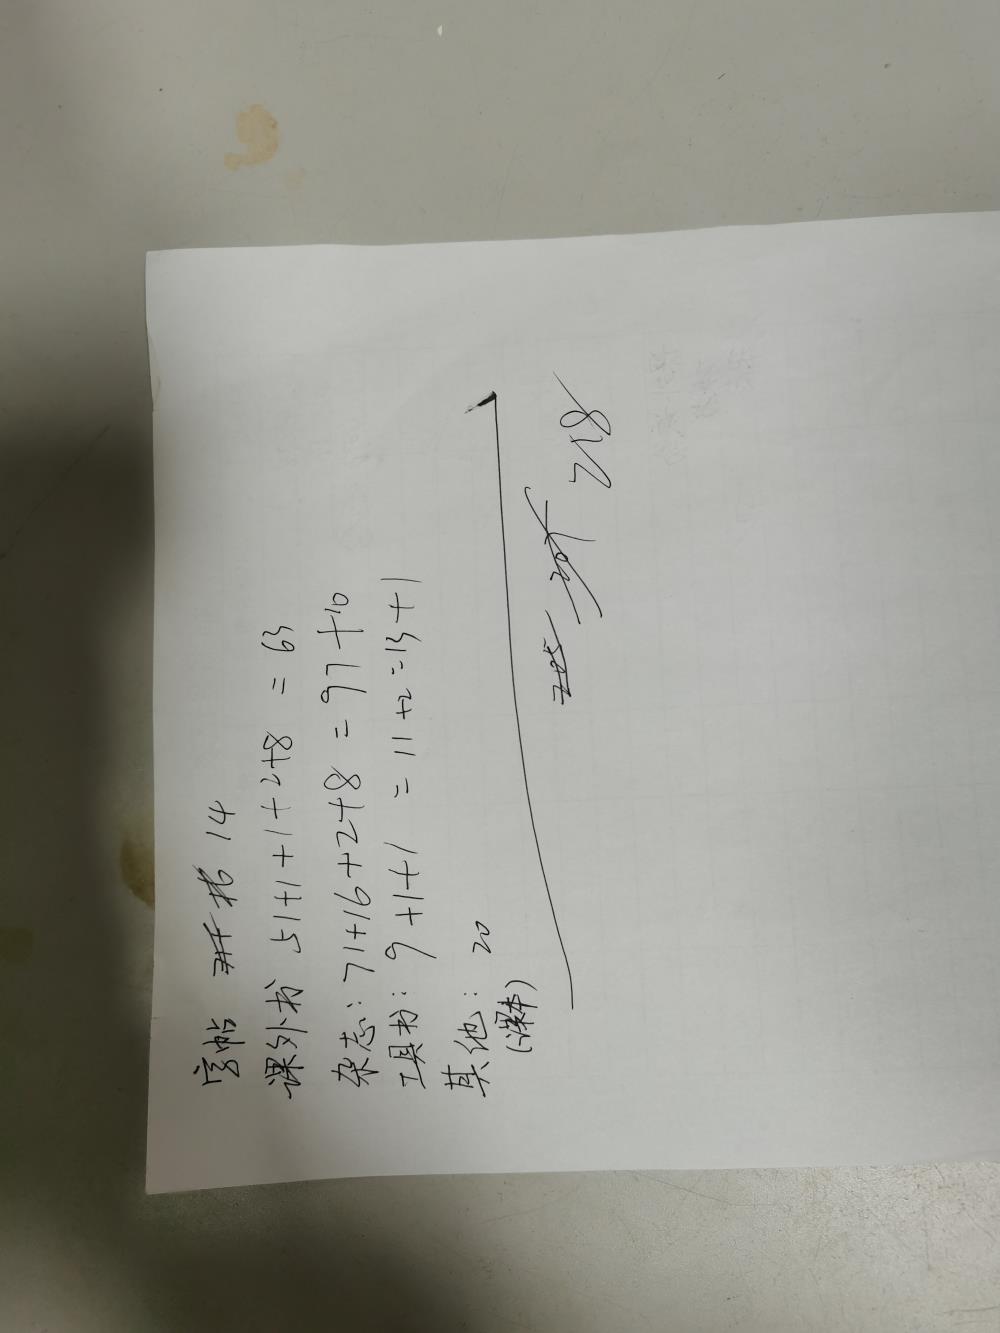 字帖 14
课外书 51+1+1+2+8 = 63
杂志：71+16+2+8 = 97+10
工具书：9+1+1 = 11+2=13+1
其他：20
（课本）
205 204 218